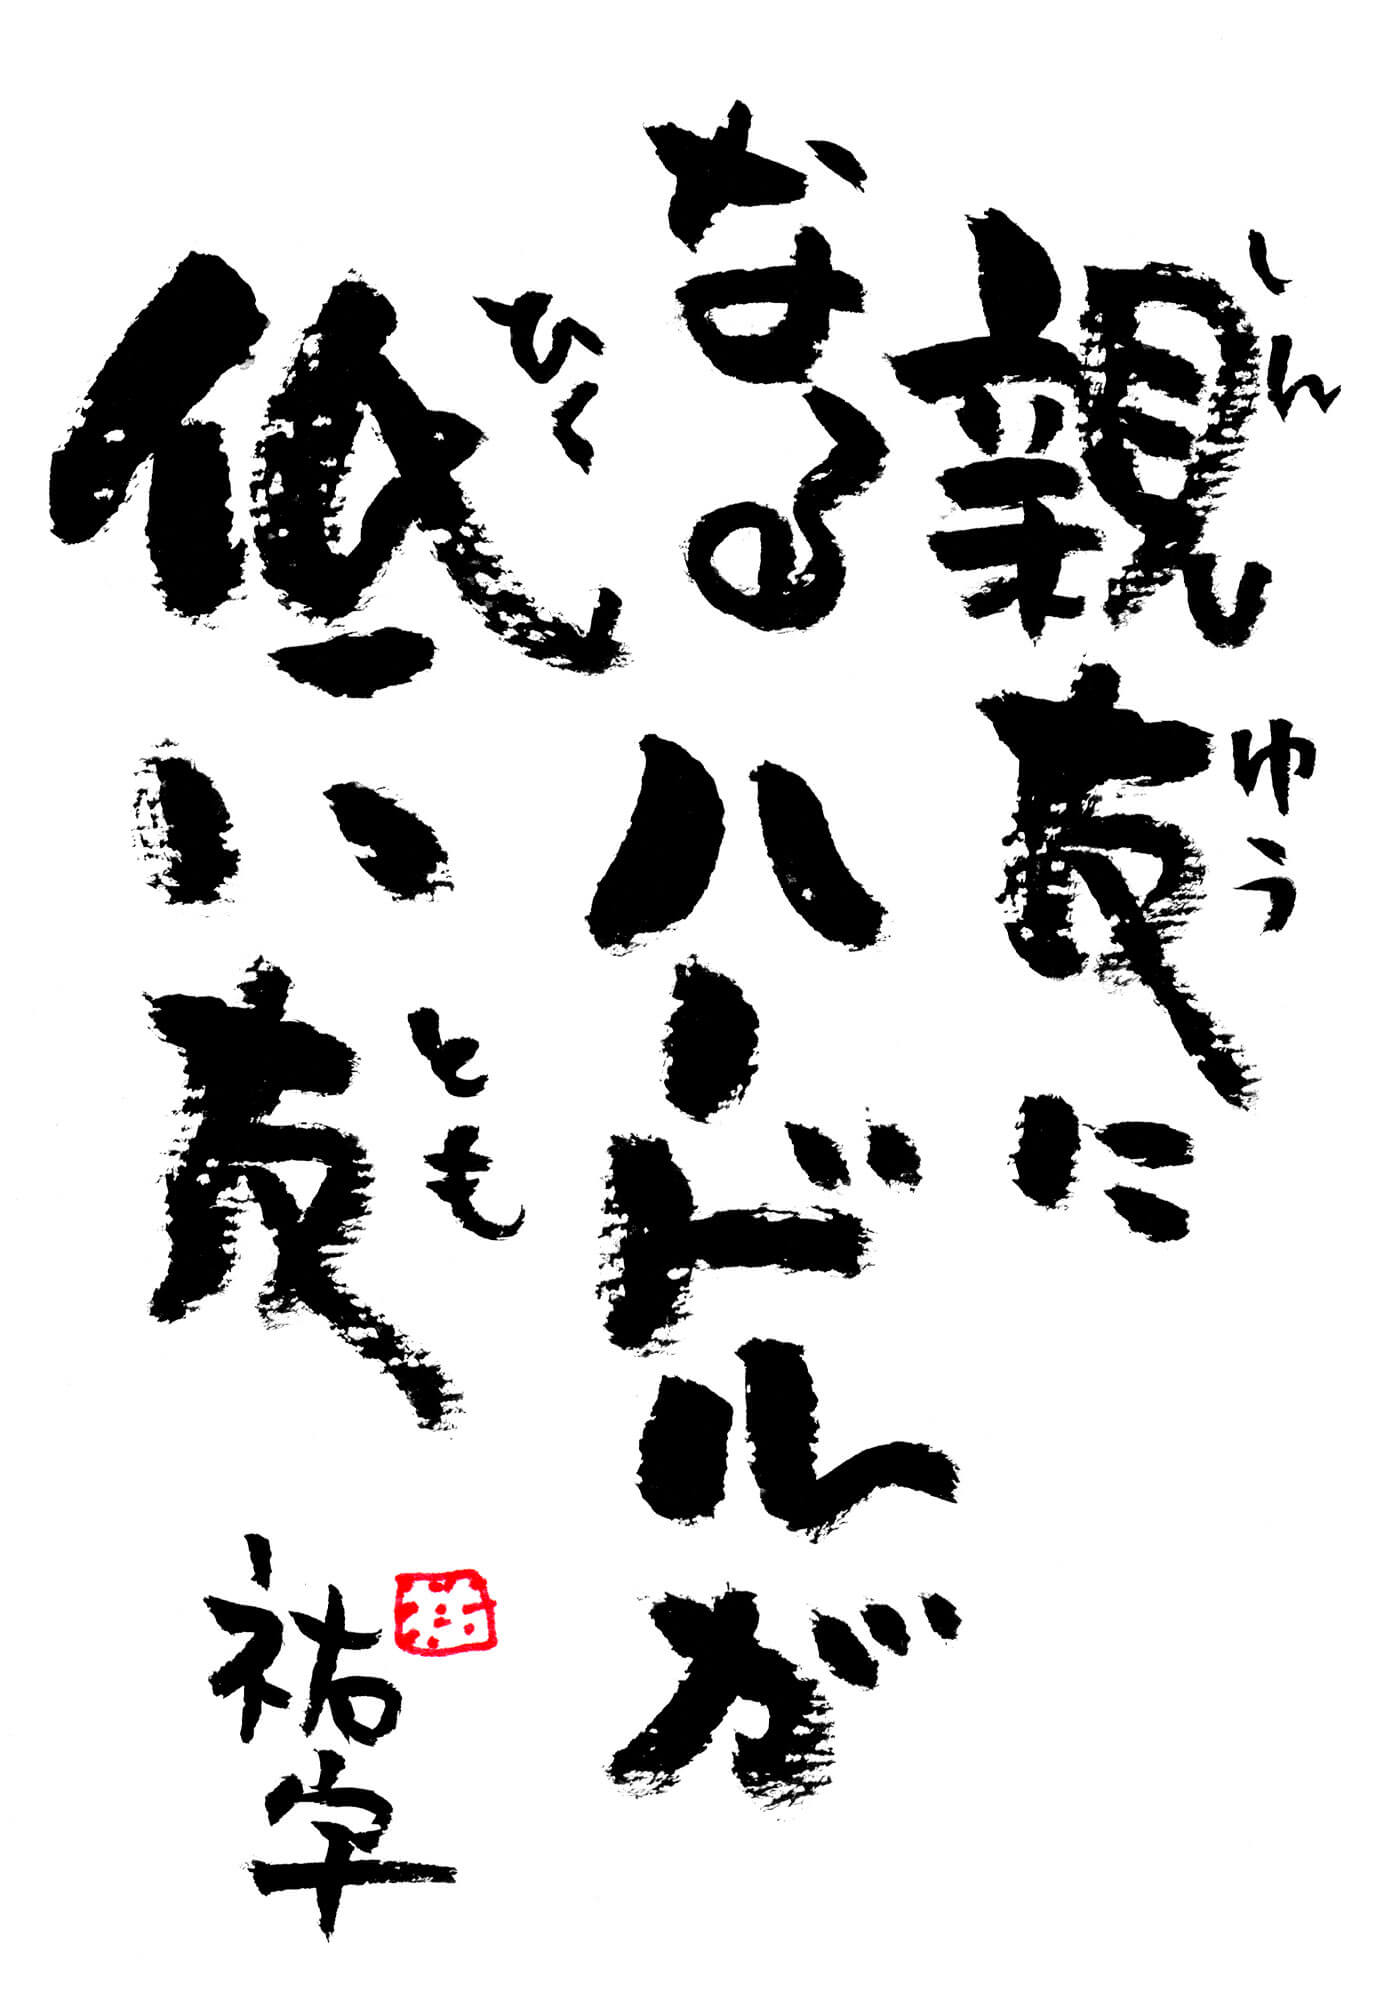 親友に
しんゆう
なるハードルが
低い友
ひく
とも
祐字
祐